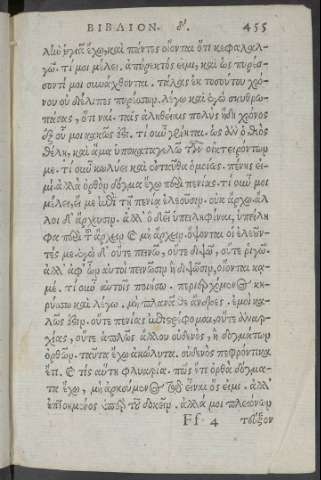 ΒΙΒΛΙΟΝ. δ'. 455
ἔχω, καὶ πάντες οἴονται ὅτι κεφαλαλ-
γῶ. τί μοι μέλει. ἀπύρεκτός εἰμι, καὶ ὡς πυρέσ-
σοντί μοι συνάχθονται. τάλας ἐκ τοσούτου χρό-
νου οὐ διέλιπες πυρέσσων. λέγω καὶ ἐγὼ σκυθρω-
πάσας, ὅτι ναί. ταῖς ἀληθείαις πολὺς ἤδη χρόνος
ἐξ οὗ μοι κακῶς ἐστι. τί οὖν γένηται. ὡς ἂν ὁ θεὸς
θέλῃ, καὶ ἅμα ὑποκαταγελῶ τῶν οἰκτειρόντων
με. τί οὖν κωλύει καὶ ἐνταῦθα ὁμοίως. πένης εἰ-
μὶ ἀλλὰ ὀρθὸν δόγμα ἔχω περὶ πενίας. τί οὖν μοι
μέλει, εἴ με ἐπὶ τῇ πενίᾳ ἐλεοῦσιν. οὐκ ἄρχω ἀλ-
λοι δ' ἄρχουσιν. ἀλλ' ὃ δεῖ ὑπειληφέναι, ὑπείλη
φα περὶ τοῦ ἄρχειν καὶ μὴ ἄρχειν. ὄψονται οἱ ἐλεοῦν-
τές με. ἐγὼ δ' οὔτε πεινῶ, οὔτε διψῶ, οὔτε ῥιγῶ.
ἀλλ' ἀφ' ὧν αὐτοὶ πεινῶσιν ἢ διψῶσιν, οἴονται κα-
μέ. τί οὖν αὐτοῖς ποιήσω. περιερχόμενος κη-
ρύσσω καὶ λέγω. μὴ πλανᾶσθε ἄνδρες. ἐμοὶ κα-
λῶς ἐστιν. οὔτε πενίας ἐπιστρέφομαι, οὔτε ἀναρ-
χίας, οὔτε ἁπλῶς ἄλλου οὐδενὸς, ἢ δογμάτων
ὀρθῶν. ταῦτα ἔχω ἀκώλυτα. οὐδενὸς πεφρόντικα
ἔτι. καὶ τίς αὕτη φλυαρία. πῶς ἔτι ὀρθὰ δόγμα-
τα ἔχω, μὴ ἀρκούμενος τοῦ εἶναι ὅς εἰμι. ἀλλ'
ἐπτοημένος ὑπὲρ τοῦ δοκεῖν. ἀλλά μοι πλειόνων
Ff 4 τεύξον